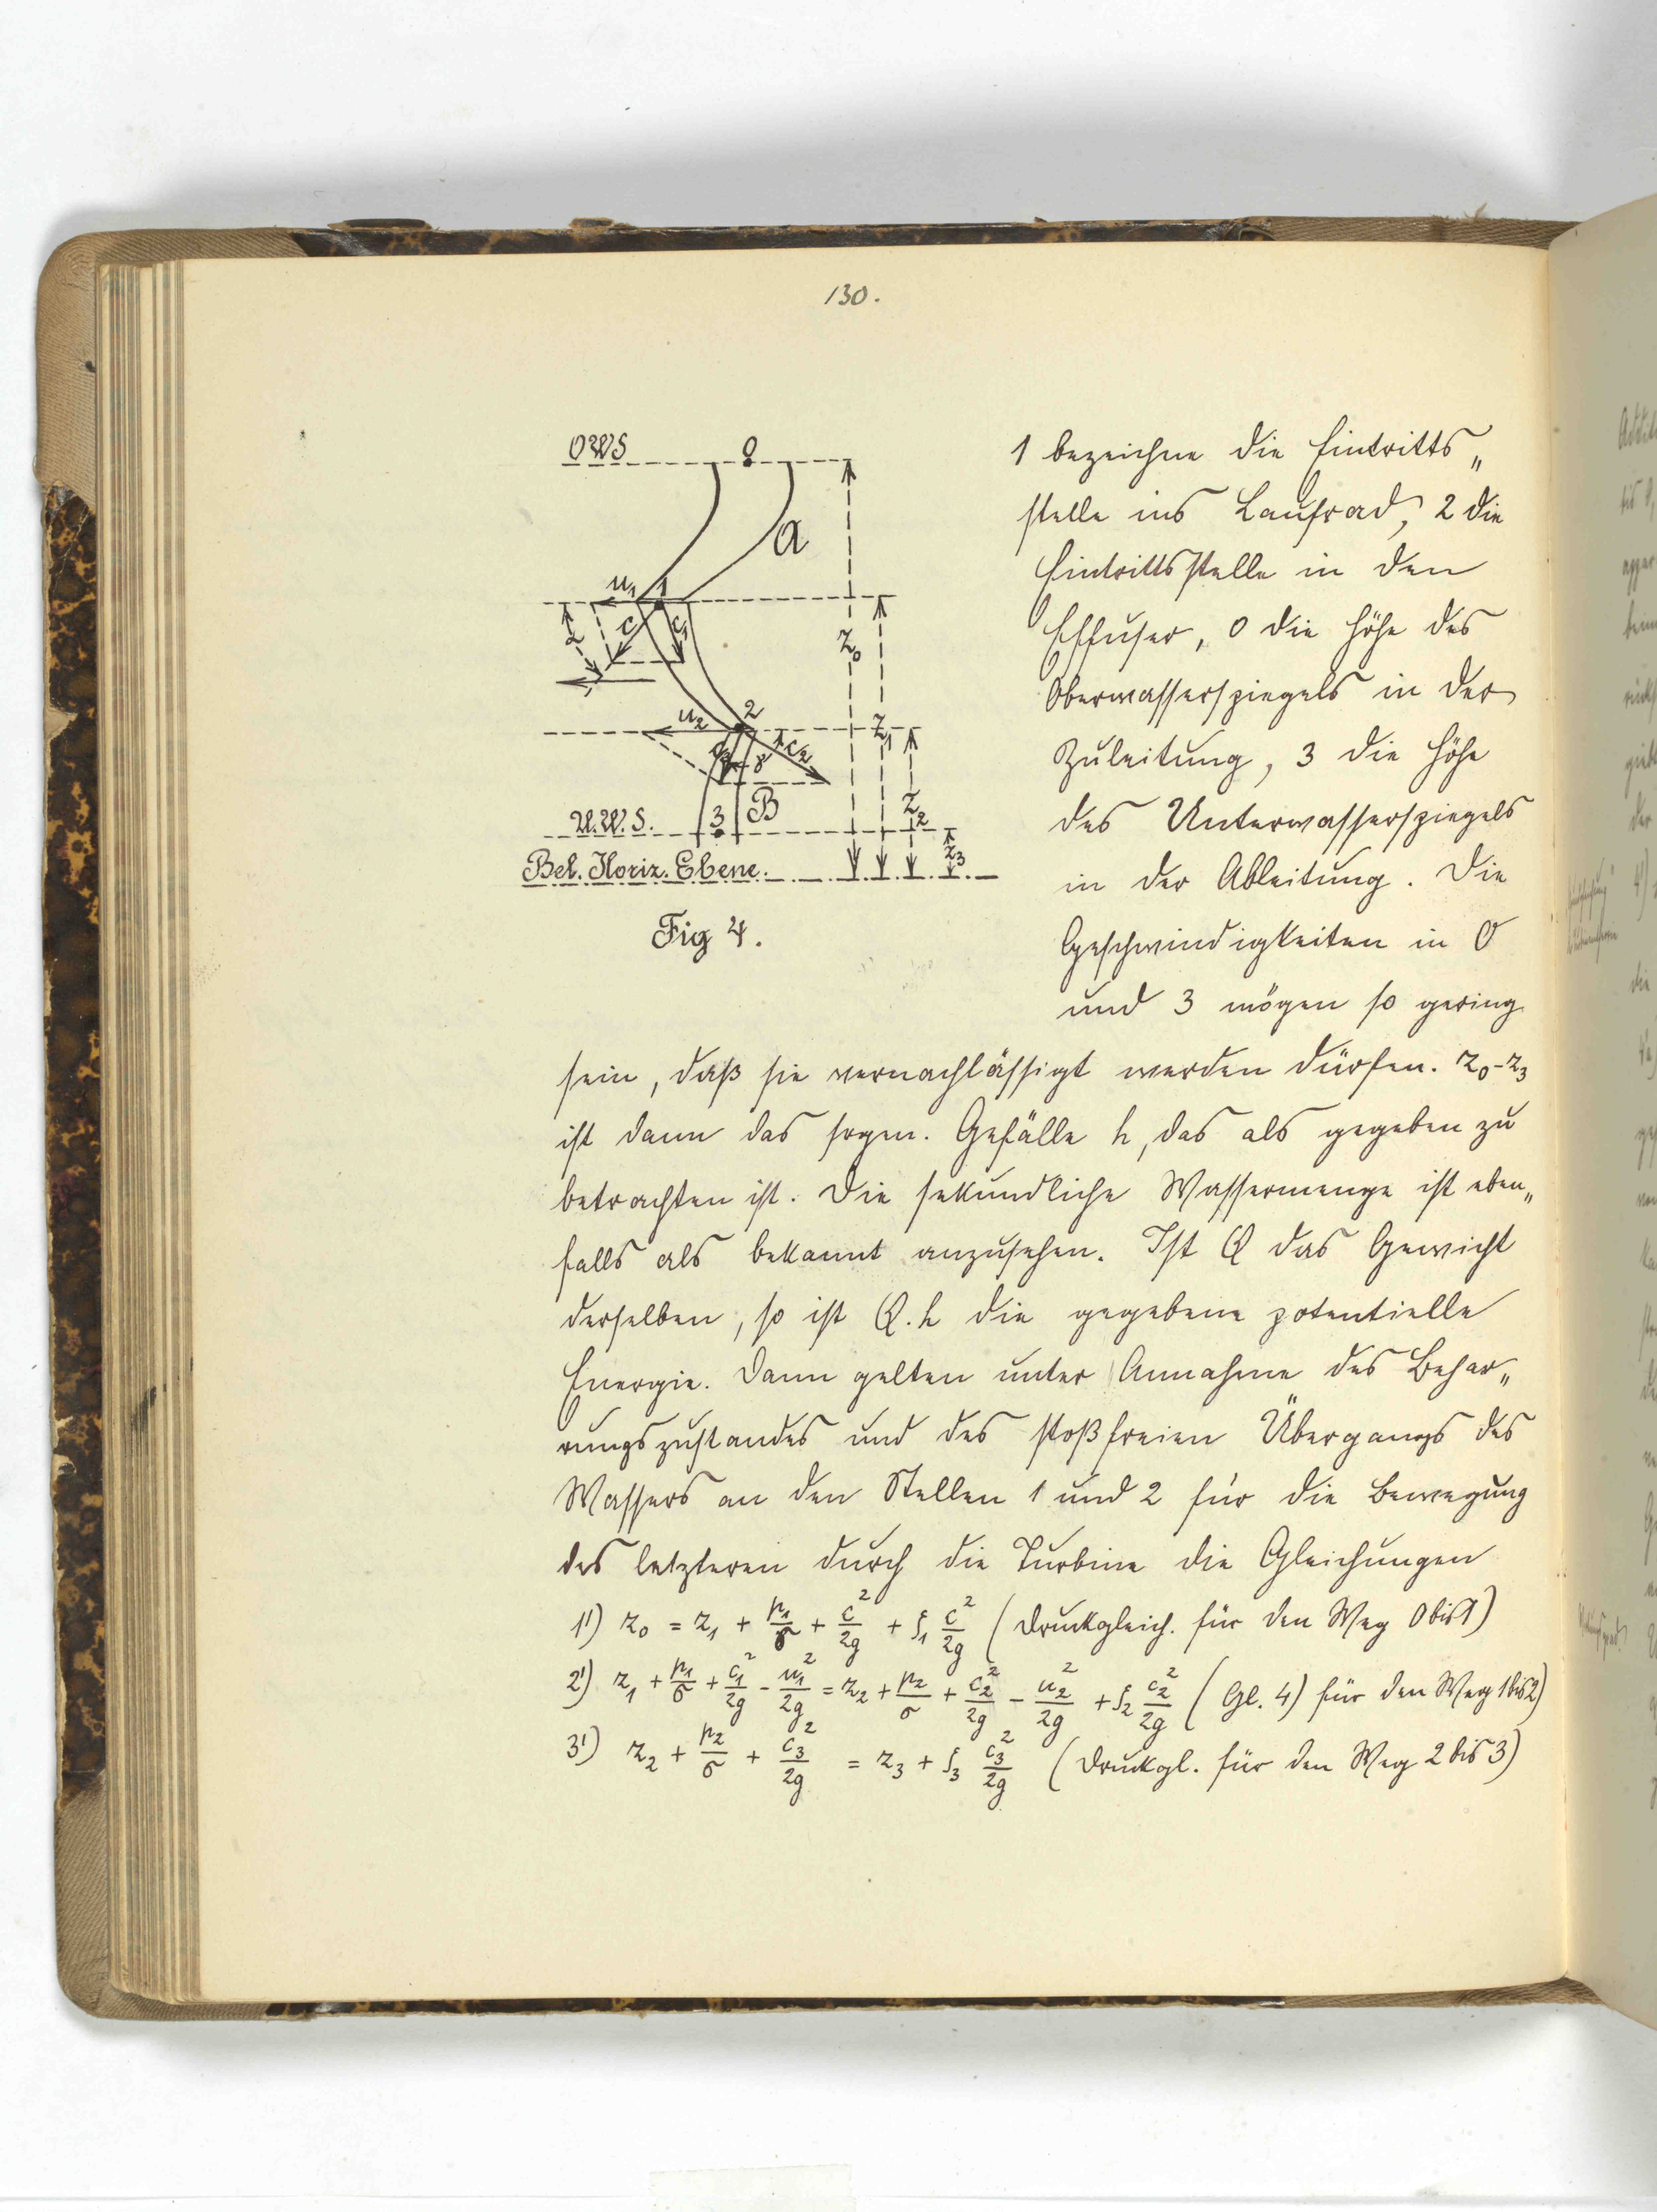 130.
OWS
0
a
u₁ 1
c c₁
α
z₀
u₂ 2
z₁
β γ c₂
z₂
U.W.S. 3 B
z₃
Bel. Horiz. Ebene.
Fig 4.
1 bezeichne die Eintritts„
stelle ins Laufrad, 2 die
Eintrittsstelle in den
Effuser, 0 die Höhe des
Oberwasserspiegels in der
Zuleitung, 3 die Höhe
des Unterwasserspiegels
in der Ableitung. Die
Geschwindigkeiten in 0
und 3 mögen so gering
sein, daß sie vernachlässigt werden dürfen. z₀-z₃
ist dann das sogen. Gefälle h, das als gegeben zu
betrachten ist. Die sekundliche Wassermenge ist eben„
falls als bekannt anzusehen. Ist Q das Gewicht
derselben, so ist Q.h die gegebene potentielle
Energie. Dann gelten unter Annahme des Behar„
rungszustandes und des stoßfreien Übergangs des
Wassers an den Stellen 1 und 2 für die Bewegung
des letzteren durch die Turbine die Gleichungen
1') z₀ = z₁ + p₁/σ + c²/2g + ζ₁ c²/2g (Druckgleich. für den Weg 0 bis 1)
2') z₁ + p₁/σ + c₁²/2g - u₁²/2g = z₂ + p₂/σ + c₂²/2g - u₂²/2g + ζ₂ c₂²/2g (Gl. 4) für den Weg 1 bis 2)
3') z₂ + p₂/σ + c₃²/2g = z₃ + ζ₃ c₃²/2g (Druckgl. für den Weg 2 bis 3)